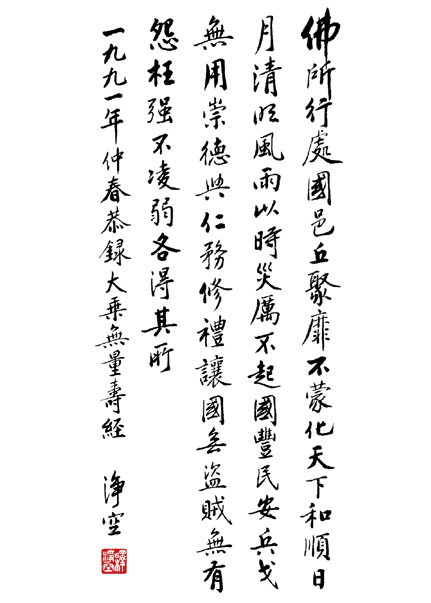 佛所行處國邑丘聚靡不蒙化天下和順日
月清明風雨以時災厲不起國豐民安兵戈
無用崇德興仁務修禮讓國無盜賊無有
怨枉强不凌弱各得其所
一九九一年仲春恭録大乘無量壽經 淨空
淨空